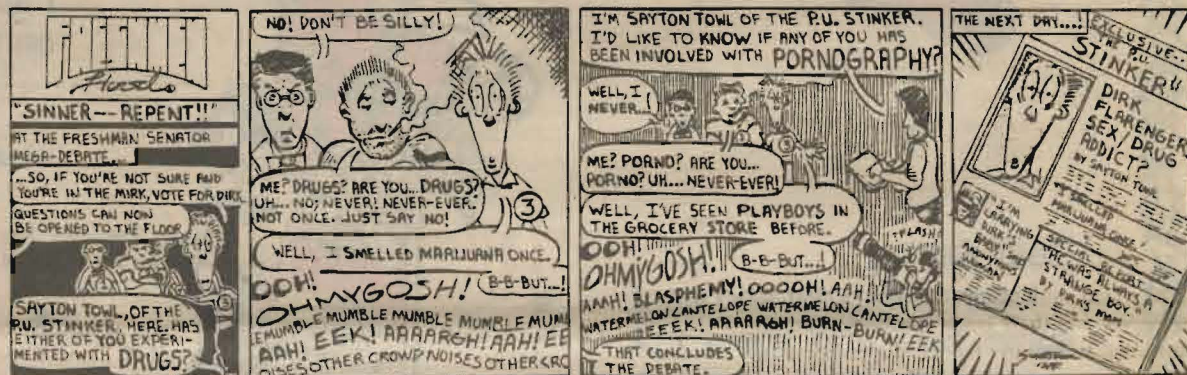 "SINNER--- REPENT!!"
AT THE FRESHMAN SENATOR
MEGA-DEBATE...
...SO, IF YOU'RE NOT SURE AND
YOU'RE IN THE MIRK, VOTE FOR DIRK.
QUESTIONS CAN NOW
BE OPENED TO THE FLOOR
SAYTON TOWL, OF THE
P.U. STINKER, HERE. HAS
EITHER OF YOU EXPERI-
MENTED WITH DRUGS?
NO! DON'T BE SILLY!
ME? DRUGS? ARE YOU... DRUGS?
UH... NO; NEVER! NEVER-EVER.
NOT ONCE. JUST SAY NO!
3
WELL, I SMELLED MARIJUANA ONCE.
OOH!
B-B-BUT...!
OHMYGOSH!
MUMBLE MUMBLE MUMBLE MUMBLE MUM
AAH! EEK! AAAARGH! AAH! EE
OISES OTHER CROWD NOISES OTHER CRO
I'M SAYTON TOWL OF THE P.U. STINKER.
I'D LIKE TO KNOW IF ANY OF YOU HAS
BEEN INVOLVED WITH PORNOGRAPHY?
WELL, I
NEVER...!
3
ME? PORNO? ARE YOU...
PORNO? UH... NEVER-EVER!
WELL, I'VE SEEN PLAYBOYS IN
THE GROCERY STORE BEFORE.
FLASH!
OOH!
OHMYGOSH!!
B-B-BUT...!
AAH! BLASPHEMY! OOOOH! AAH!
WATERMELON CANTELOPE WATERMELON CANTELOPE
EEEK! AAARRGH! BURN-BURN! EEK
THAT CONCLUDES
THE DEBATE.
THE NEXT DAY....!
EXCLUSIVE...
THE P.U.
STINKER
DIRK
FLARENGER
SEX/DRUG
ADDICT?
BY SAYTON TOWL
"I SMELLED
MARIJUANA ONCE."
"I'M
CARRYING
DIRK'S
BABY"
SPECIAL REPORT
"HE WAS ALWAYS A
STRANGE BOY."
BY DIRK'S MOM